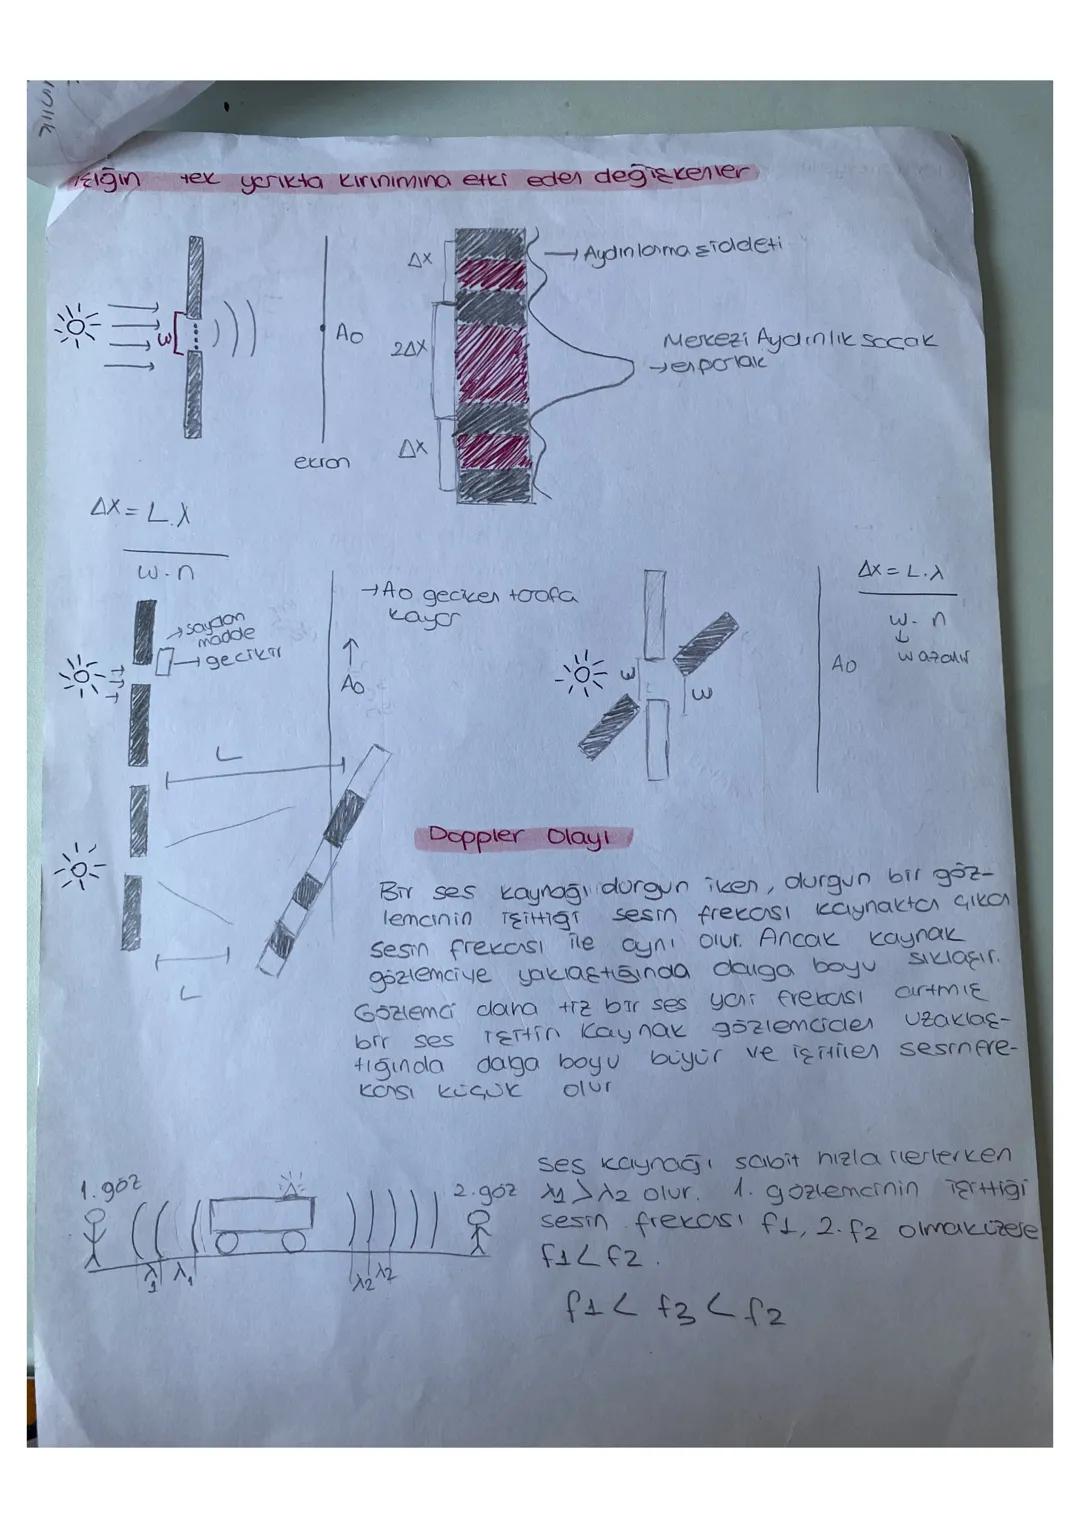 ışığın tek yarıkta kırınımına etki eden değişkenler
Δx
→ Aydınlanma şiddeti
w
A0
2Δx
Merkezi Aydınlık saçak
→ en parlak
Δx
ekran
Δx = L.λ
w.n
→ saydam
madde
→ geciktir
→ A0 geciken tarafa
kayar
↑
A0
w
w
A0
Δx = L.λ
w. n
↓
w azalır
L
L
Doppler Olayı
Bir ses kaynağı durgun iken, durgun bir göz-
lemcinin işittiği sesin frekansı kaynaktan çıkan
sesin frekansı ile aynı olur. Ancak kaynak
gözlemciye yaklaştığında dalga boyu sıklaşır.
Gözlemci daha tiz bir ses yani frekansı artmış
bir ses işitir. Kaynak gözlemciden uzaklaş-
tığında dalga boyu büyür ve işitilen sesin fre-
kansı küçük olur
1. göz
2. göz
λ1 λ1
λ2 λ2
Ses kaynağı sabit hızla ilerlerken
λ1 > λ2 olur. 1. gözlemcinin işittiği
sesin frekansı f1, 2. f2 olmak üzere
f1 < f2.
f1 < f3 < f2